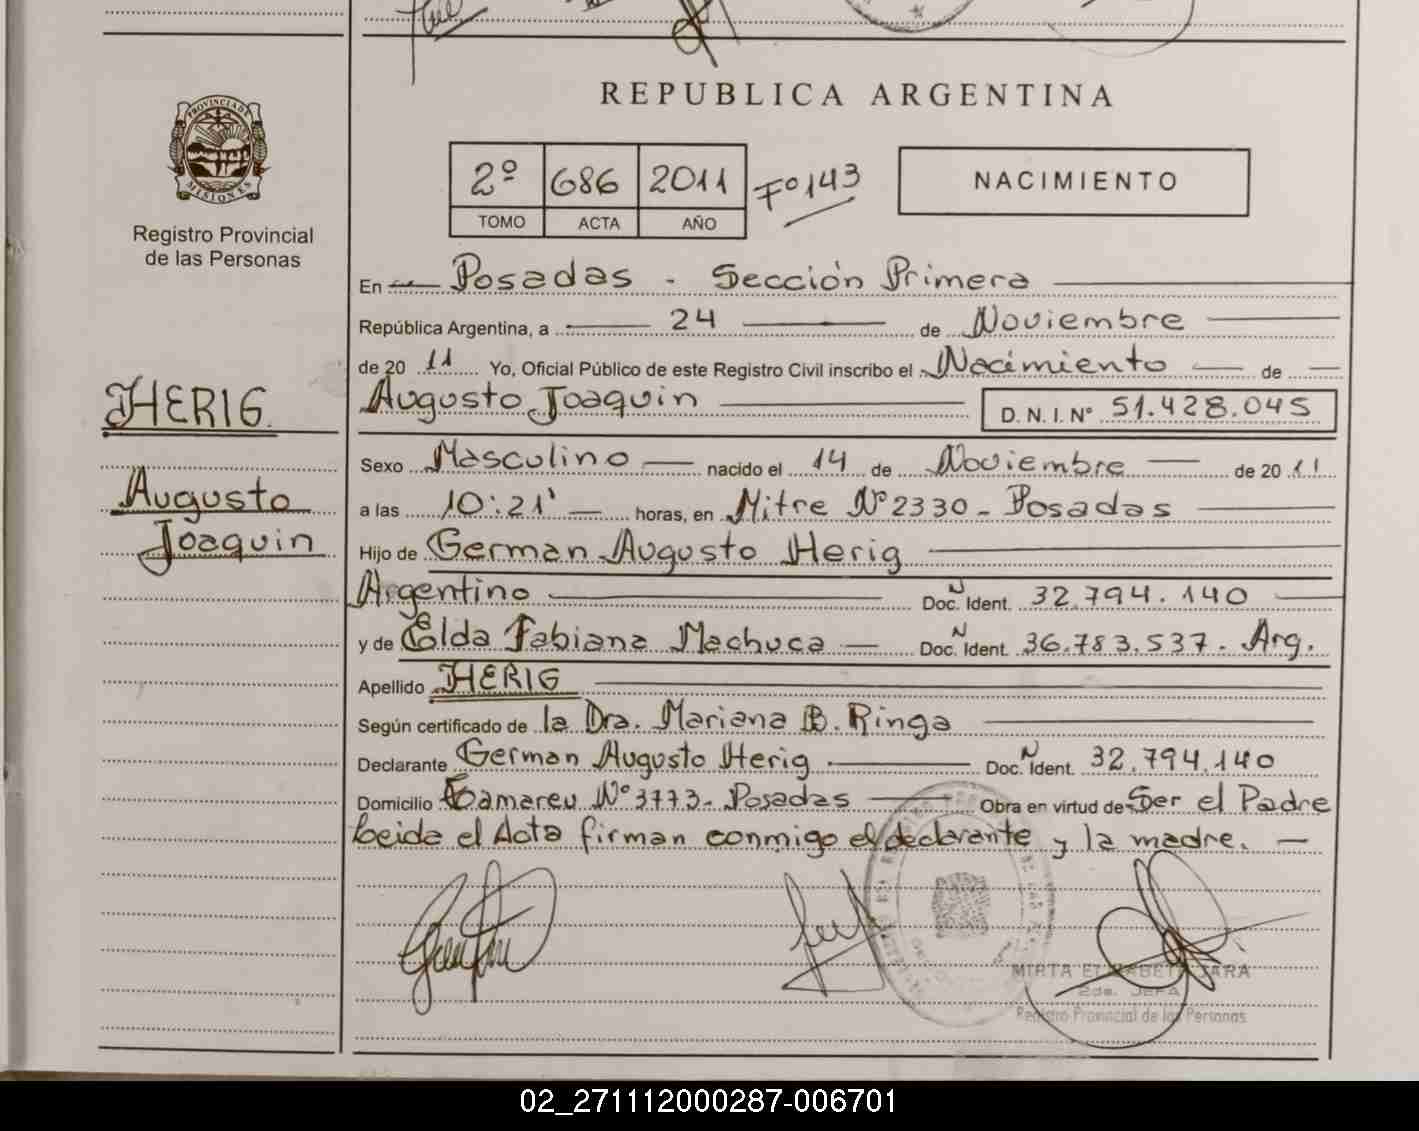 REPUBLICA ARGENTINA
PROVINCIA DE MISIONES
Registro Provincial
de las Personas
2º 686 2011 Fº 143
TOMO ACTA AÑO
NACIMIENTO
En Posadas - Sección Primera
República Argentina, a 24 de Noviembre
de 20 11 Yo, Oficial Público de este Registro Civil inscribo el Nacimiento de
HERIG
Augusto Joaquin D. N. I. Nº 51.428.045
Sexo Masculino nacido el 14 de Noviembre de 20 11
Augusto
Joaquin
a las 10:21' horas, en Mitre Nº 2330 - Posadas
Hijo de German Augusto Herig
Argentino Doc. N Ident. 32.794.140
y de Elda Fabiana Machuca Doc. N Ident. 36.783.537. Arg.
Apellido HERIG
Según certificado de la Dra. Mariana B. Ringa
Declarante German Augusto Herig Doc. N Ident. 32.794.140
Domicilio Tamareu Nº 3773 - Posadas Obra en virtud de Ser el Padre
Leida el Acta firman conmigo el declarante y la madre.
MIRTA ELIZABETH JARA
2da. JEFA
Registro Provincial de las Personas
02_271112000287-006701